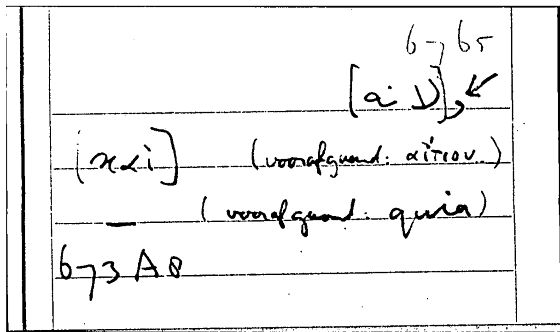 [a i V],
[καὶ] (voorafgaand: αἴτιον)
— (voorafgaand: quia)
673 A8